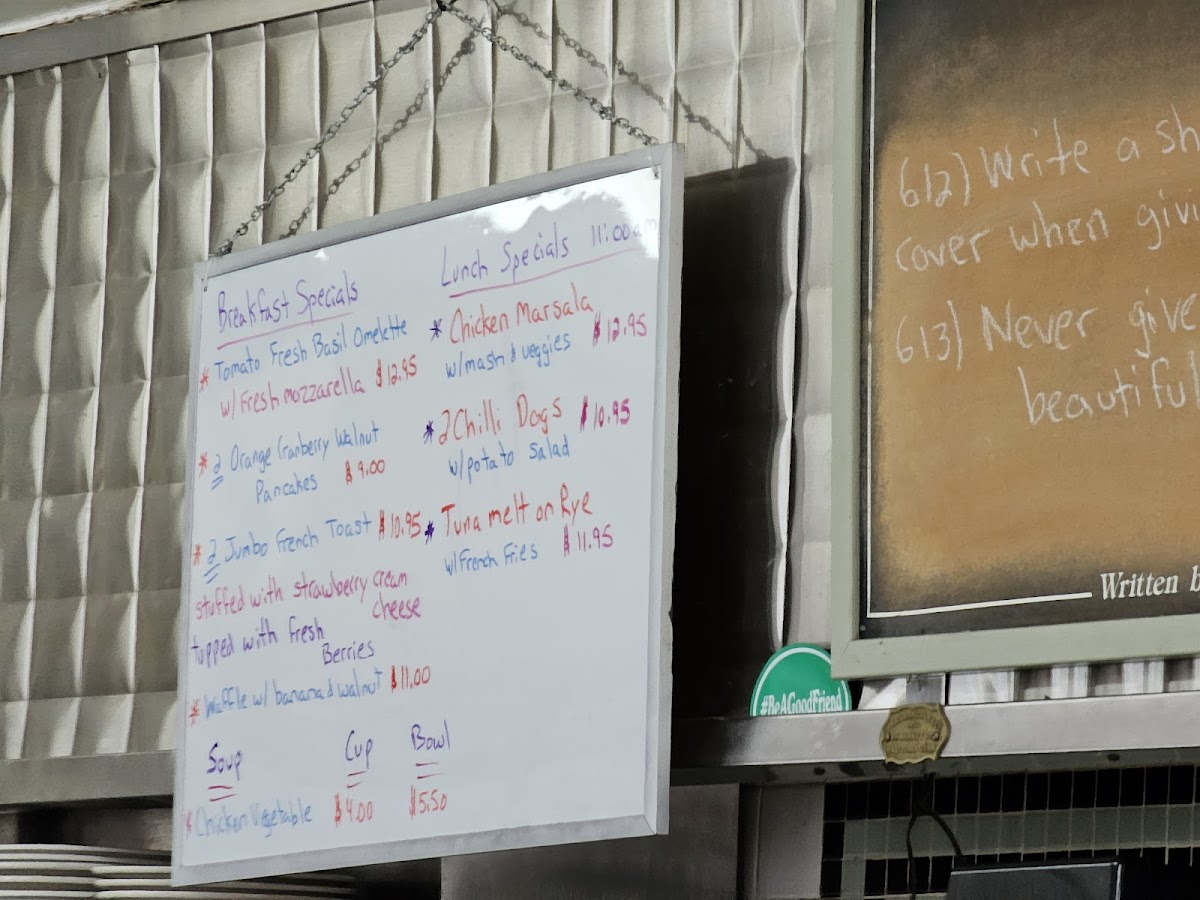 Breakfast Specials
* Tomato Fresh Basil Omelette
w/ Fresh mozzarella $12.95
* 2 Orange Cranberry Walnut
Pancakes $9.00
* 2 Jumbo French Toast $10.95
stuffed with strawberry cream
cheese
topped with fresh
Berries
* Waffle w/ banana & walnut $11.00
Soup Cup Bowl
* Chicken Vegetable $4.00 $5.50
Lunch Specials 11:00am
* Chicken Marsala
w/mash & veggies $12.95
* 2 Chilli Dogs $10.95
w/potato salad
* Tuna melt on Rye
w/French Fries $11.95
612) Write a sh
cover when givi
613) Never give
beautiful
Written b
#BeAGoodFriend